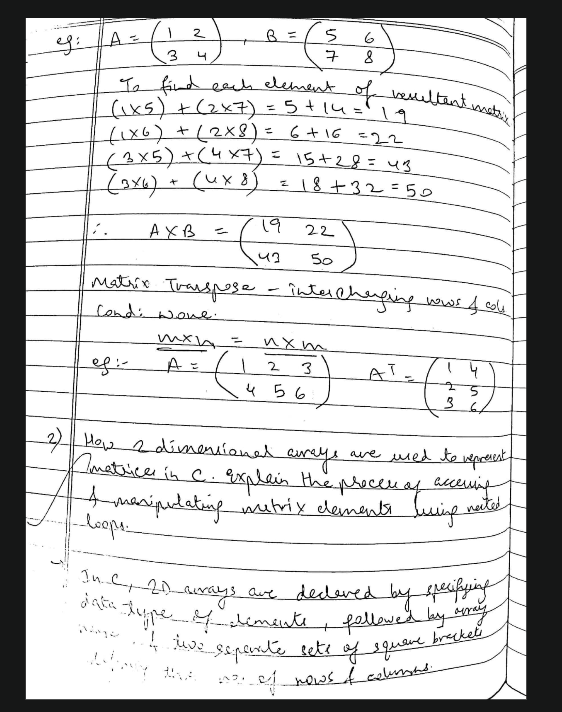 eg: A = ( 1 2 , B = ( 5 6
3 4 ) 7 8 )
To find each element of resultant matrix
(1x5) + (2x7) = 5 + 14 = 19
(1x6) + (2x8) = 6 + 16 = 22
(3x5) + (4x7) = 15 + 28 = 43
(3x6) + (4x8) = 18 + 32 = 50
∴ A X B = ( 19 22
43 50 )
Matrix Transpose - interchanging rows & cols
Cond: none.
mxn = nxm
eg:- A = ( 1 2 3 AT = ( 1 4
4 5 6 ) 2 5
3 6 )
2) How 2 dimensional arrays are used to represent
matrices in C. Explain the process of accessing
& manipulating metrix elements using nested
loops.
→ In C, 2D arrays are declared by specifying
data type of elements, followed by array
name & two separate sets of square brackets
the no. of rows & columns.